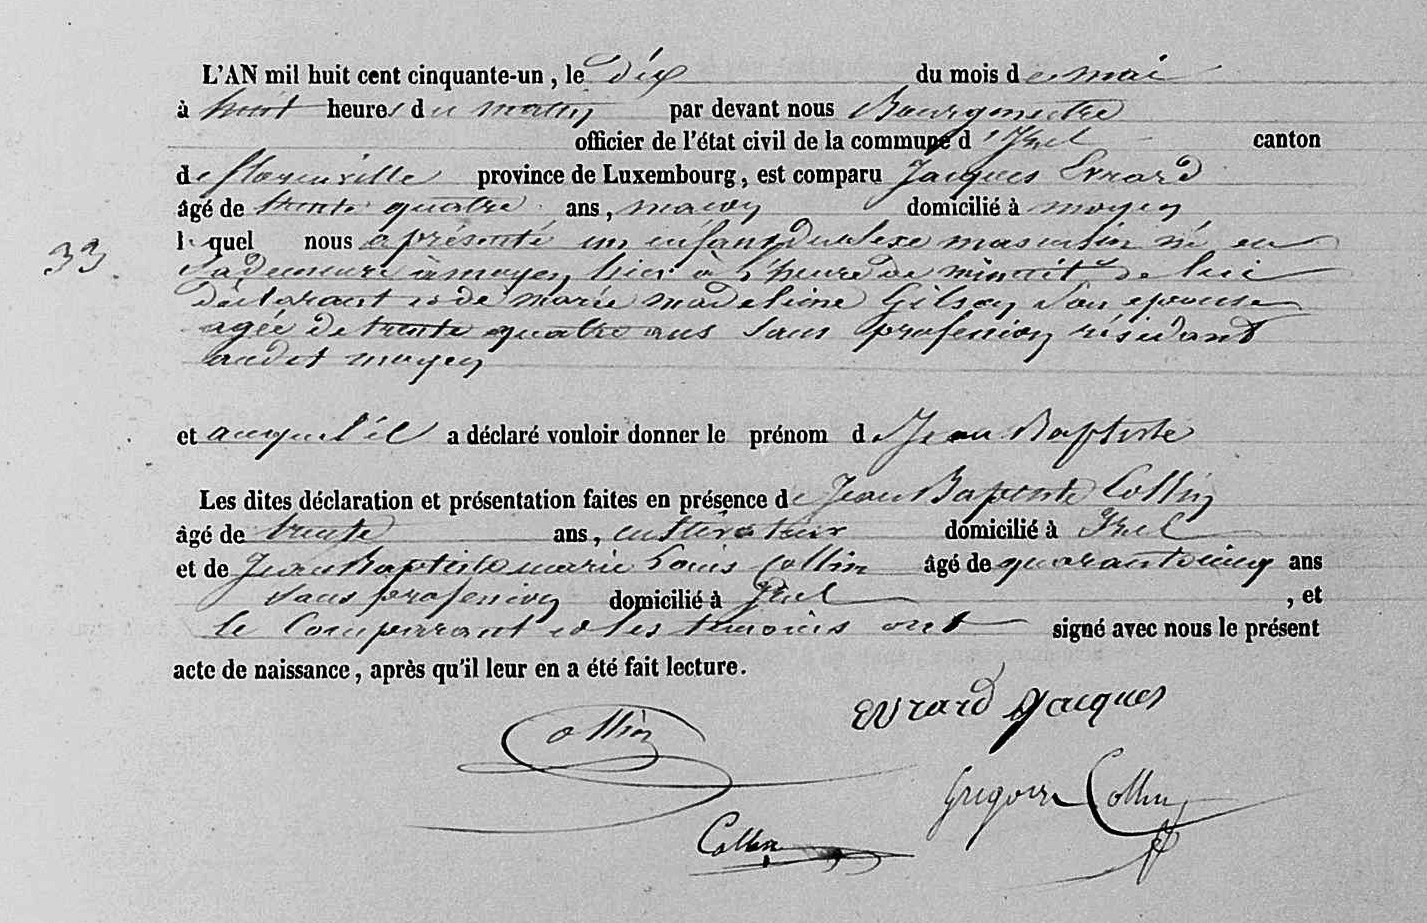 L'AN mil huit cent cinquante-un, le dix du mois de mai
à huit heures du matin par devant nous Bourgmestre
officier de l'état civil de la commune d'Izel canton
de florenville province de Luxembourg, est comparu Jacques Evrard
âgé de trente quatre ans, maçon domicilié à moyen
lequel nous a présenté un enfant du sexe masculin né en
sa demeure à moyen, hier à l'heure de minuit de lui
déclarant et de marie madeleine Gilson son epouse
agée de trente quatre ans sans profession résidant
audit moyen
33.
et auquel il a déclaré vouloir donner le prénom de Jean Baptiste
Les dites déclaration et présentation faites en présence de Jean Baptiste Collin
âgé de trente ans, cultivateur domicilié à Izel
et de Jean Baptiste marie Louis Collin âgé de quarante cinq ans
sans profession domicilié à Izel , et
le Comparant et les temoins ont signé avec nous le présent
acte de naissance, après qu'il leur en a été fait lecture.
Evrard Jacques
Collin
Gregoire Collin
Collin